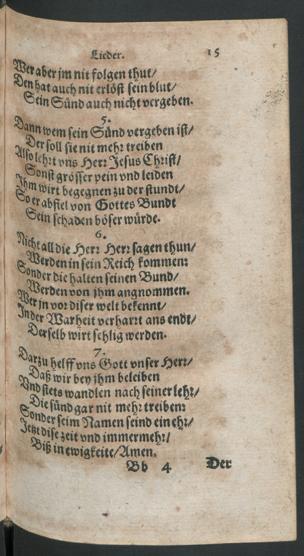 Lieder. 15
Wer aber jm nit folgen thut/
Den hat auch nit erlöst sein blut/
Sein Sünd auch nicht vergeben.
5.
Dann wem sein Sünd vergeben ist/
Der soll sie nit mehr treiben
Also lehrt vns Herr Jesus Christ/
Sonst grösser pein vnd leiden
Ihm wirt begegnen zu der stundt/
So er abfiel von Gottes Bundt
Sein schaden böser würde.
6.
Nicht all die Herr Herr sagen thun/
Werden in sein Reich kommen:
Sonder die halten seinen Bund/
Werden von jhm angnommen.
Wer jn vor diser welt bekennt/
In der Warheit verharrt ans endt/
Derselb wirt selig werden.
7.
Darzu helff vns Gott vnser Herr/
Daß wir bey jhm beleiben
Vnd stets wandlen nach seiner lehr/
Die sünd gar nit mehr treiben:
Sonder seim Namen seind ein ehr/
Jetzt dise zeit vnd immermehr/
Biß in ewigkeite/ Amen.
Bb 4 Der